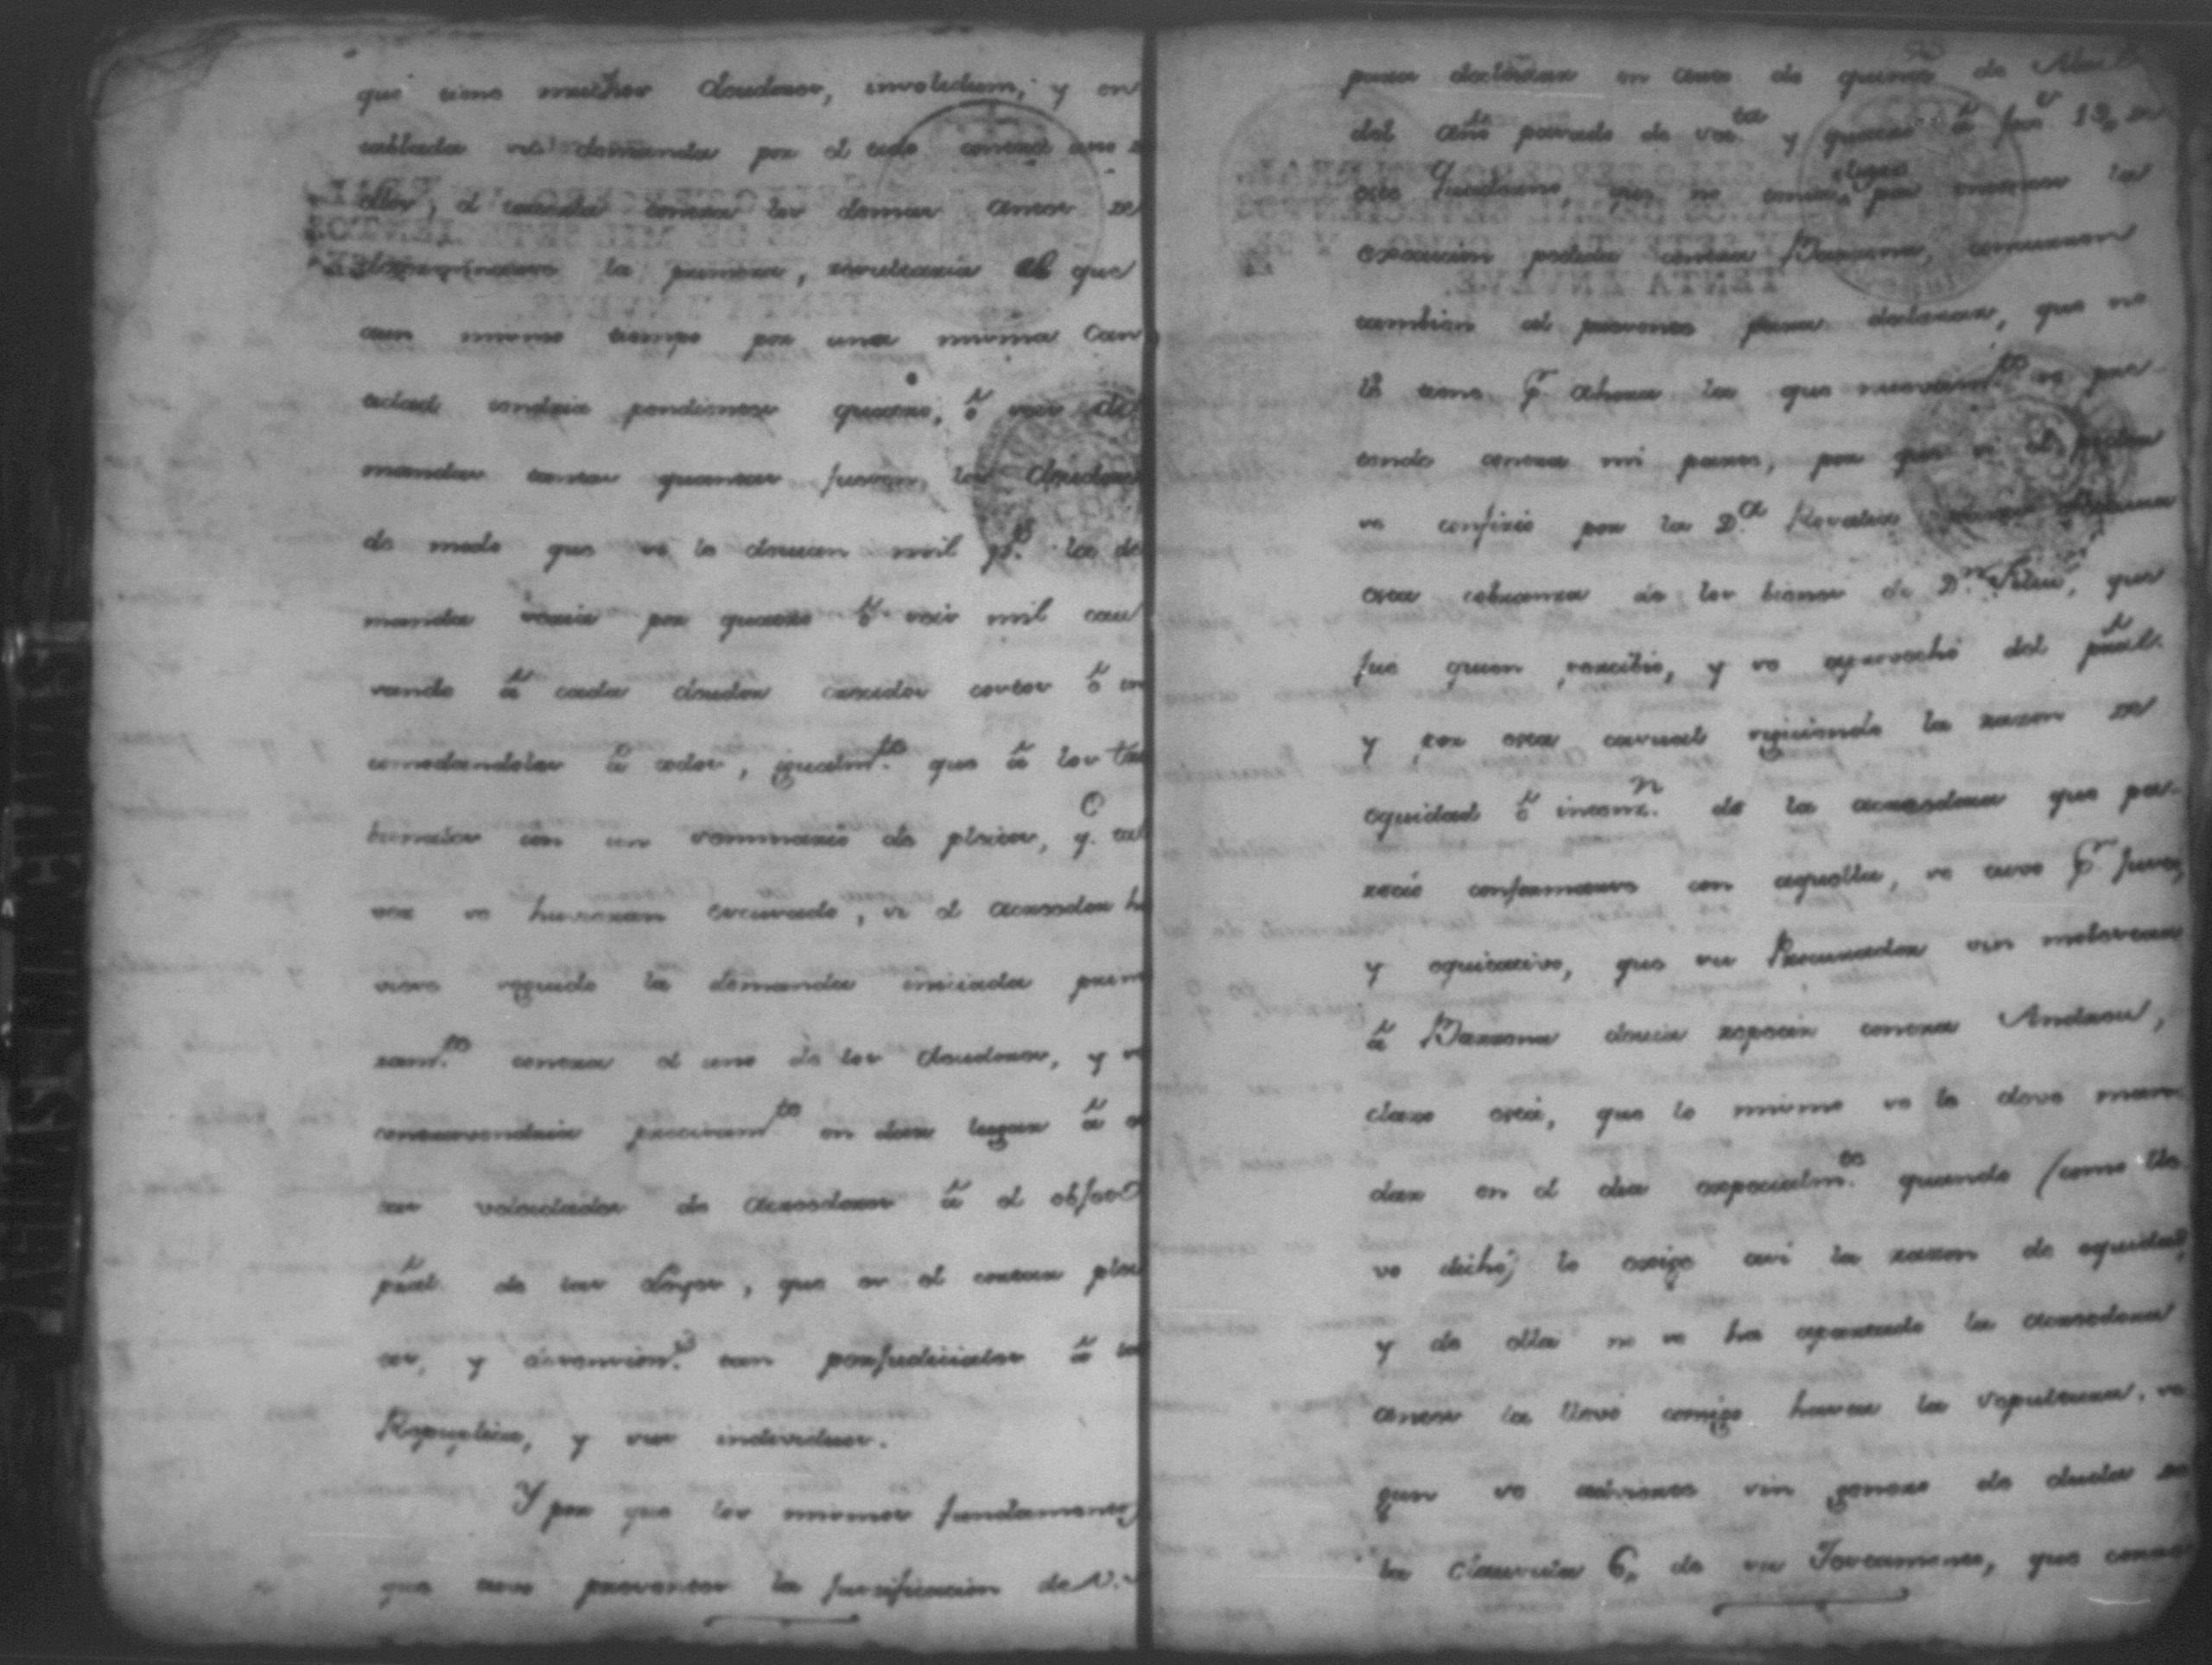 que tiene muchos deudores, insolidum, y en
tablada su demanda por el todo contra uno de
ellos, el intentar contra los demas antes de
determinarse la primera, resultaria el que
aun mismo tiempo por una misma can
tidad tendria pendientes quatro, ó seis de
mandas tantas quantas fuesen los deudores
de modo que si le devian mil p.s las de
mandas seria por quatro ó seis mil cau
sando á cada deudor crecidos costos é in
comodandolos á todos, igualm.te que á los tri
bunales con un sommario de pleitos, q.e tal
vez se huvieran escusado, si el acreedor hu
viese seguido la demanda iniciada prim
ram.te contra el uno de los deudores, y se
contravendria precisam.te en dar lugar á
las voluntades de acreedores á el obgeto
pral. de las Leyes, que es el cortar plei
tos, y disension.s tan perjudiciales á la
Republica, y sus individuos.
Y por que los mismos fundamentos,
que tuvo presentes la justificacion de V.
para declarar en auto de quince de Abril
del año pasado de set.ta y quatro á fox.s 19, de
este Quaderno, que no tenia lugar por entonces la
execucion pedida contra Barzena, concurren
tambien al presente para declarar, que no
la tiene p.r ahora la que nuevam.te se pre-
tende contra mi parte, por que si el poder
se confirió por la D.a Rosalia
esta cobranza de los bienes de D.n Felix, que
fue quien recibió, y se aprovechó del pral.
y por esta causal siguiendo la razon de
equidad ó intenz.n de la acreedora que pa-
reció conformarse con aquella, se tuvo p.r justo,
y equitativo, que su Procurador sin molestar
á Barzena devia repetir contra Andreu,
claro está, que lo mismo se le deve man
dar en el dia especialm.te quando (como lla
vo dicho) lo exige asi la razon de equidad,
y de ella no se ha apartado la acreedora
antes la llevó consigo hasta la sepultura, se
gun se advierte sin genero de duda de
la clausula 6, de su Testamento, que consta